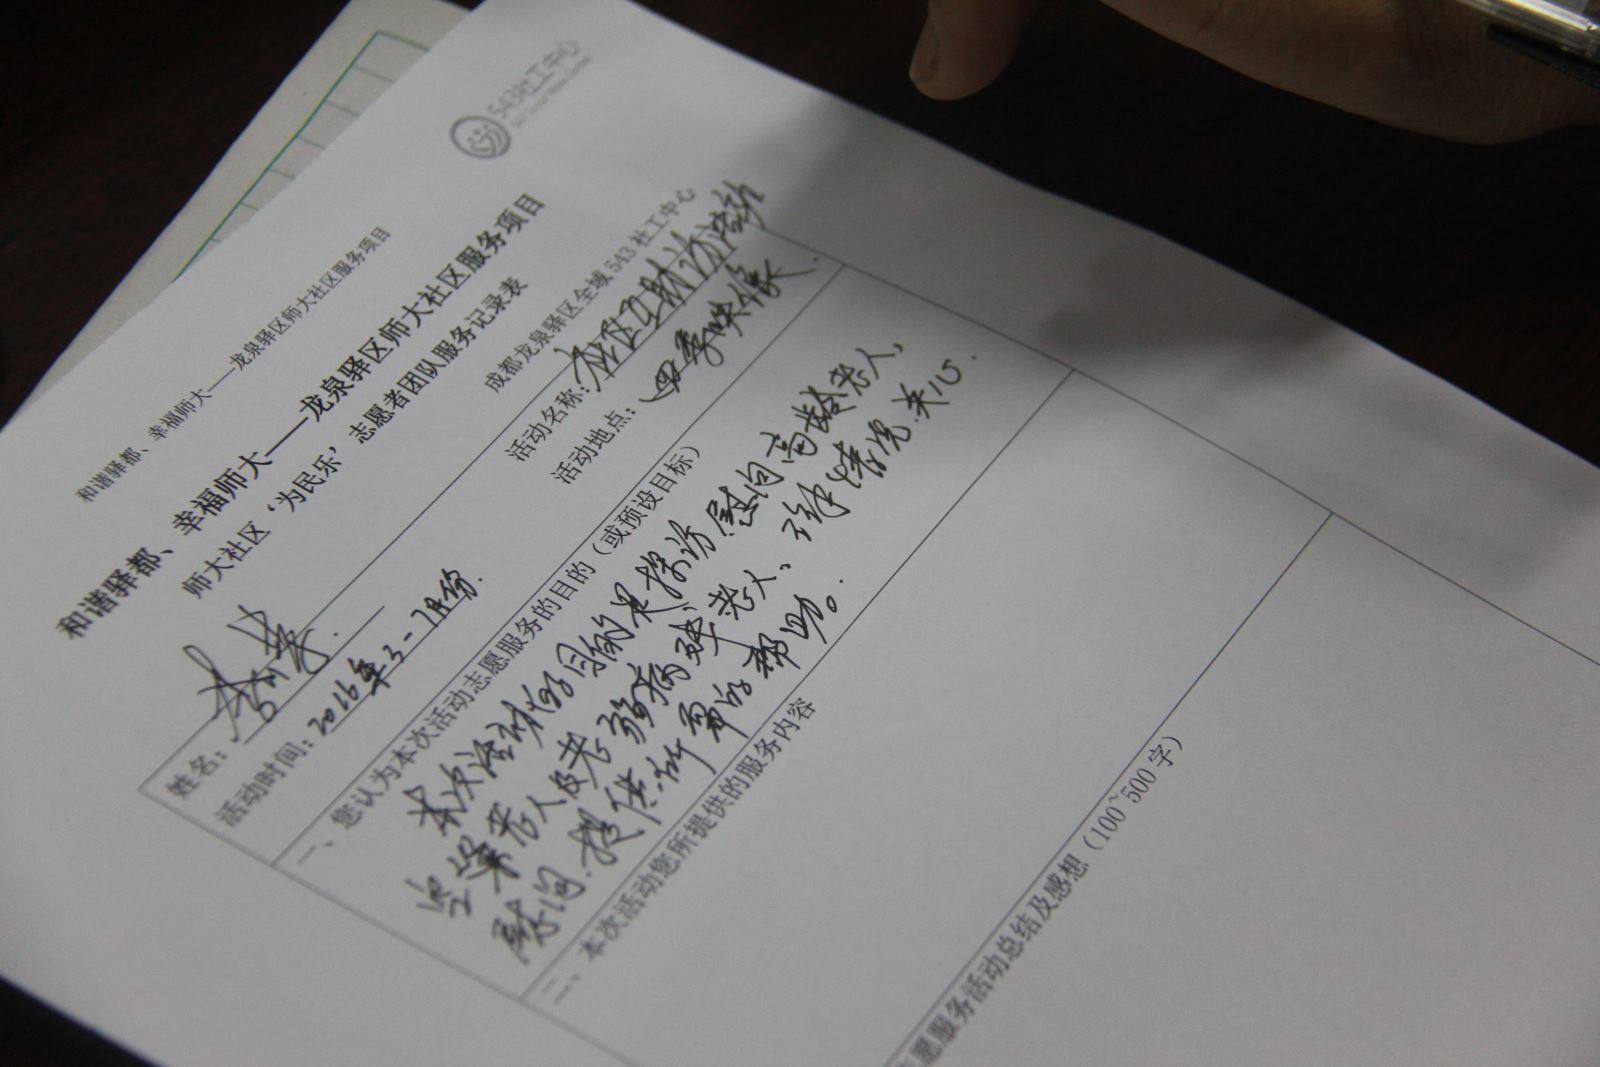 543社工中心
543 Social Work Center
和谐驿都、幸福师大——龙泉驿区师大社区服务项目
和谐驿都、幸福师大——龙泉驿区师大社区服务项目
师大社区‘为民乐’志愿者团队服务记录表
成都龙泉驿区全域543社工中心
姓名： 活动名称：社区互助访活动
活动时间：2016年3-7月份. 活动地点：四季映像
一、您认为本次活动志愿服务的目的（或预设目标）
本次活动的目的是探访.慰问高龄老人,
空巢老人及老弱病残老人、详情况.关心.
慰问.提供所需的帮助。
二、本次活动您所提供的服务内容
愿服务活动总结及感想（100~500字）